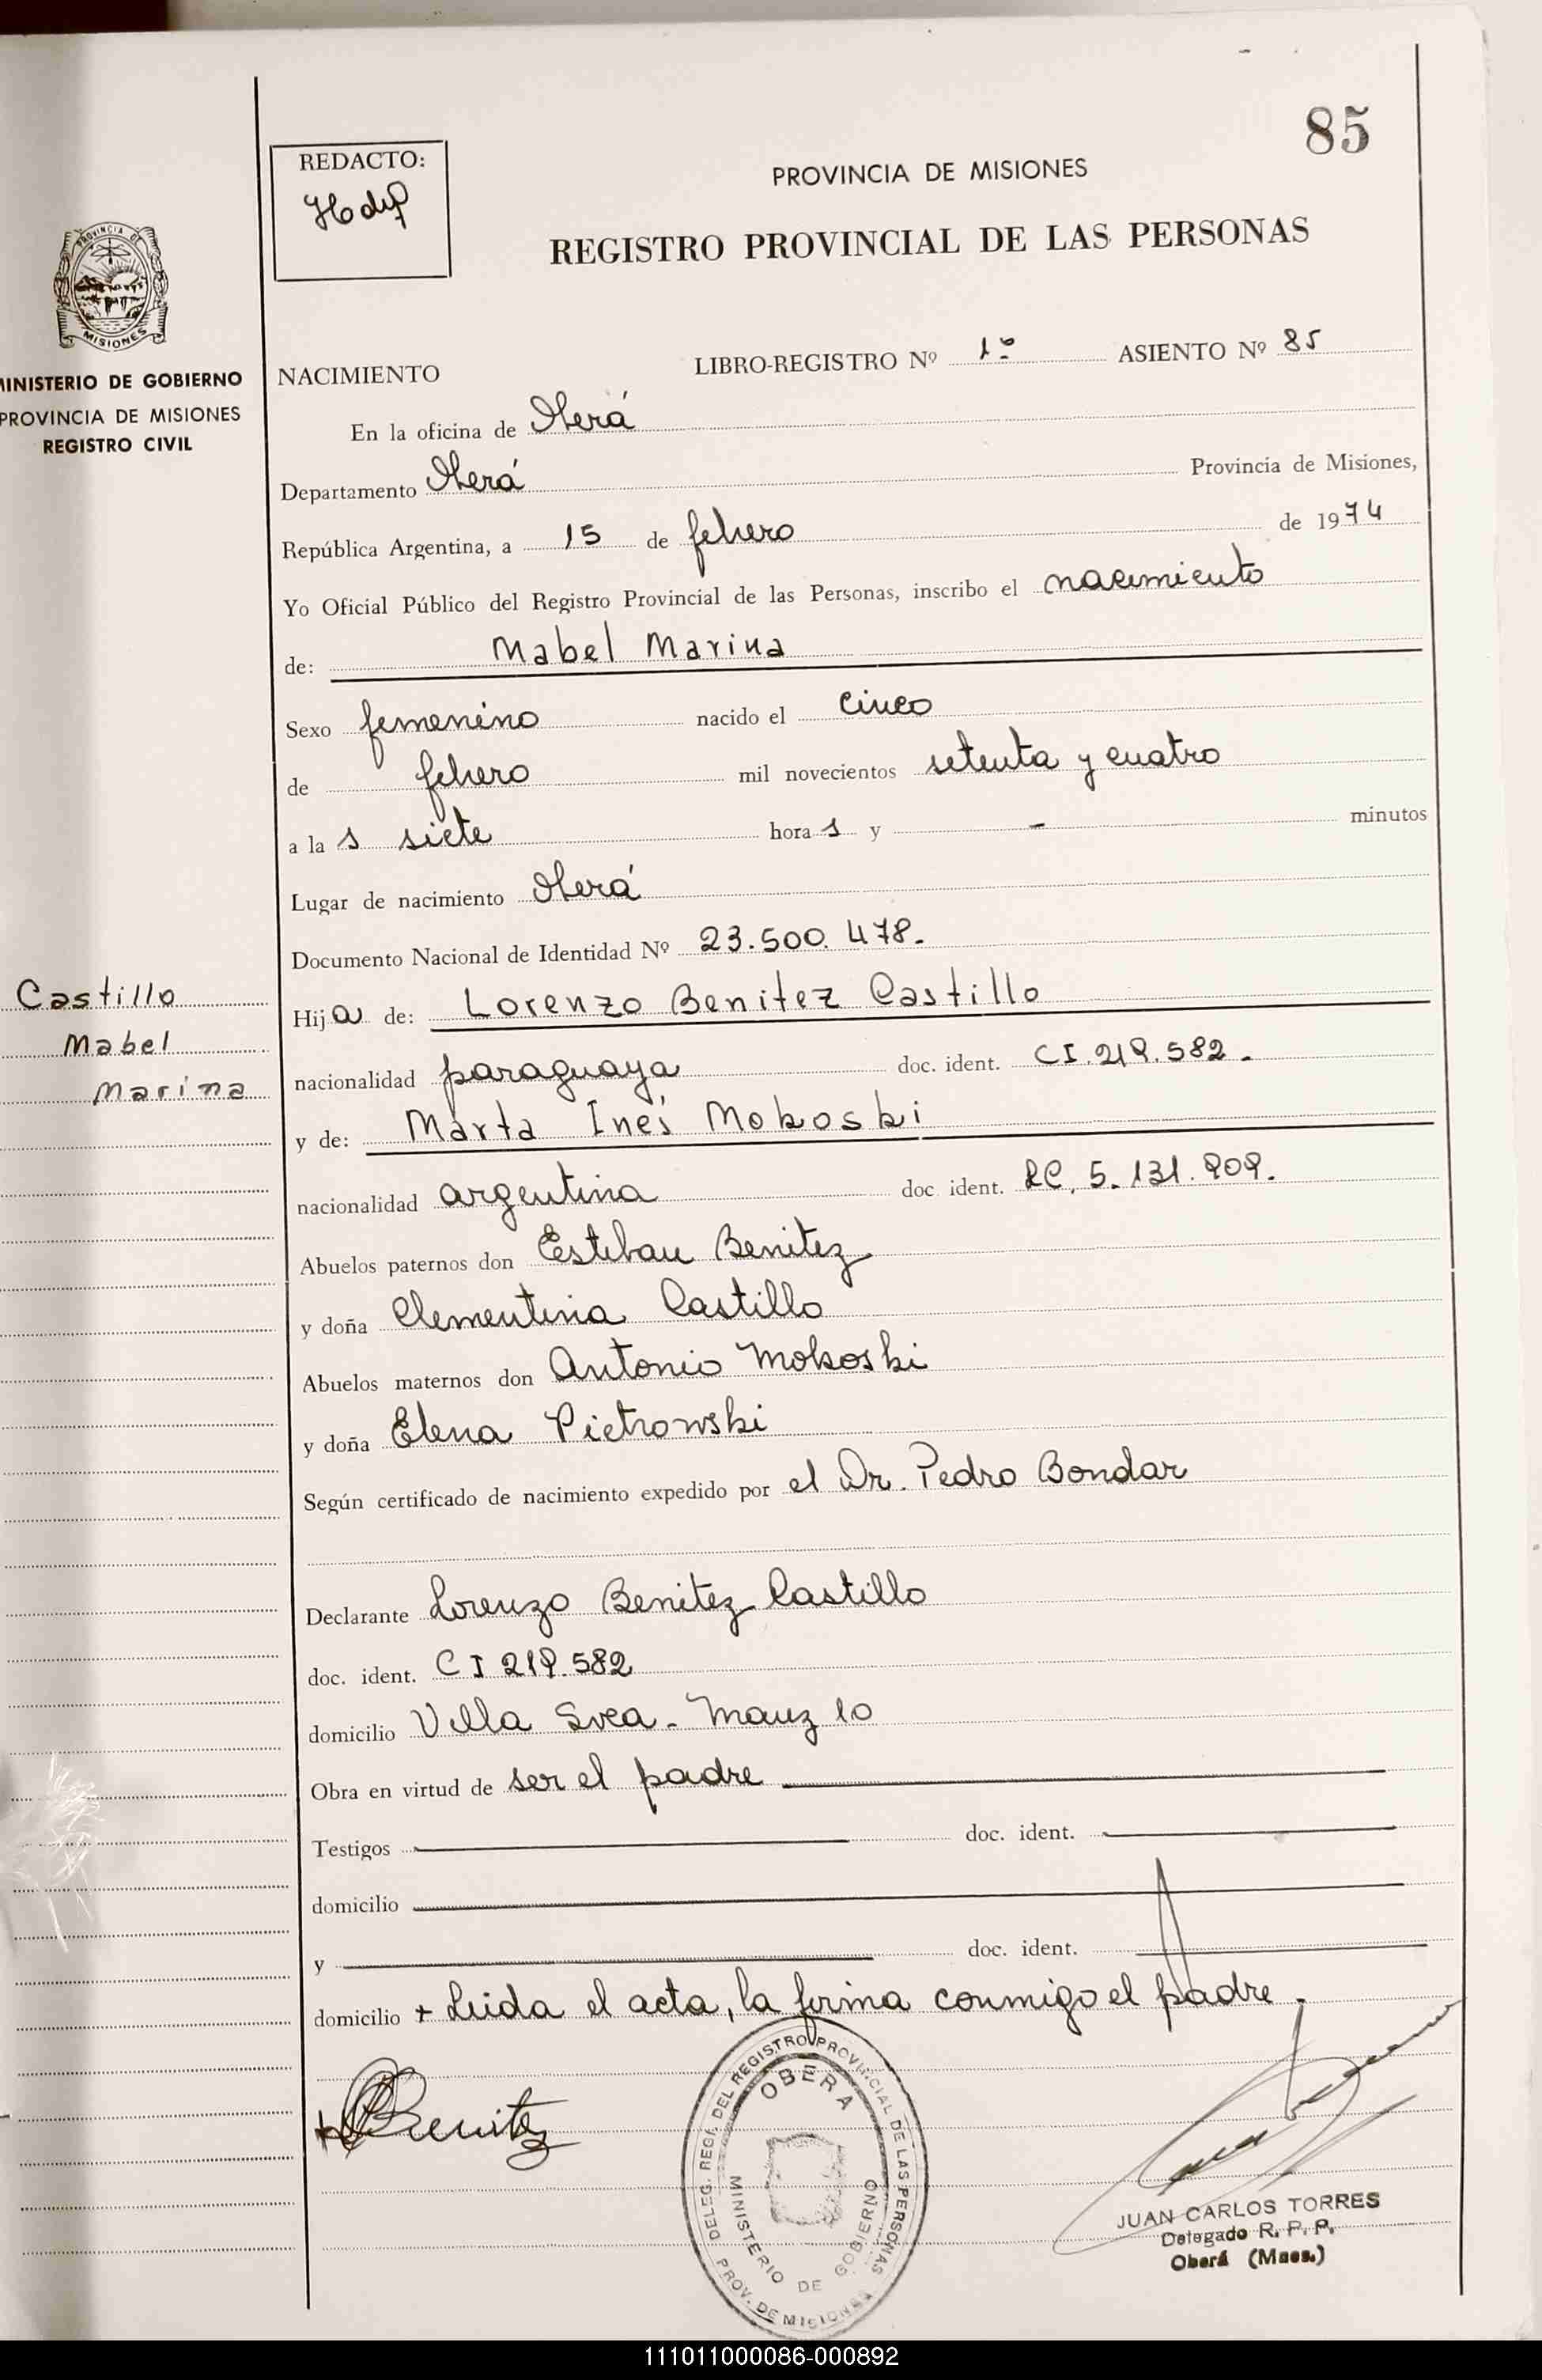 85
REDACTO:
PROVINCIA DE MISIONES
REGISTRO PROVINCIAL DE LAS PERSONAS
PROVINCIA DE
MISIONES
MINISTERIO DE GOBIERNO
PROVINCIA DE MISIONES
REGISTRO CIVIL
NACIMIENTO LIBRO-REGISTRO Nº 1º ASIENTO Nº 85
En la oficina de Oberá
Departamento Oberá Provincia de Misiones,
República Argentina, a 15 de febrero de 1974
Yo Oficial Público del Registro Provincial de las Personas, inscribo el nacimiento
de: Mabel Marina
Sexo femenino nacido el cinco
de febrero mil novecientos setenta y cuatro
a la s siete hora s y - minutos
Lugar de nacimiento Oberá
Documento Nacional de Identidad Nº 23.500.478.
Castillo
Mabel
Marina
Hija de: Lorenzo Benitez Castillo
nacionalidad paraguaya doc. ident. CI.219.582.
y de: Marta Inés Mokoski
nacionalidad argentina doc ident. LC. 5.131.909.
Abuelos paternos don Esteban Benitez
y doña Clementina Castillo
Abuelos maternos don Antonio Mokoski
y doña Elena Pietrowski
Según certificado de nacimiento expedido por el Dr. Pedro Bondar
Declarante Lorenzo Benitez Castillo
doc. ident. CI 219.582
domicilio Villa Svea - Manz 10
Obra en virtud de ser el padre
Testigos doc. ident.
domicilio
y doc. ident.
domicilio + Leida el acta, la firma conmigo el padre.
Benitez
DELEG. REGI. DEL REGISTRO PROVINCIAL DE LAS PERSONAS
OBERA
MINISTERIO DE GOBIERNO
PROV. DE MISIONES
JUAN CARLOS TORRES
Delegado R. P. P.
Oberá (Mnes.)
111011000086-000892